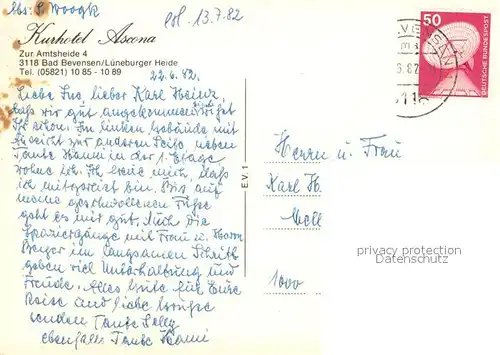 Abs: S. Woogk
erl. 13.7.82
Kurhotel Ascona
Zur Amtsheide 4
3118 Bad Bevensen/Lüneburger Heide
Tel. (05821) 10 85 - 10 89
22.6.82.
Liebe Ina, lieber Karl Heinz,
daß wir gut angekommen sind, wißt
Ihr schon. Im linken Gebäude mit
Aussicht zur anderen Seite, neben
Tante Hanni in der 1. Etage
wohne ich. Ich freue mich, daß
ich mitgereist bin. Bis auf
meine geschwollenen Füße
geht es mir gut. Auch die
Spaziergänge mit Frau u. Herrn
Berger im langsamen Schritt
geben viel Unterhaltung und
Freude. Alles Gute für Eure
Reise und liebe Grüße
senden Tante Selly
ebenfalls Tante Hanni
E.V. 1
50
DEUTSCHE BUNDESPOST
Herrn u. Frau
Karl H.
Mell
1000
privacy protection
Datenschutz